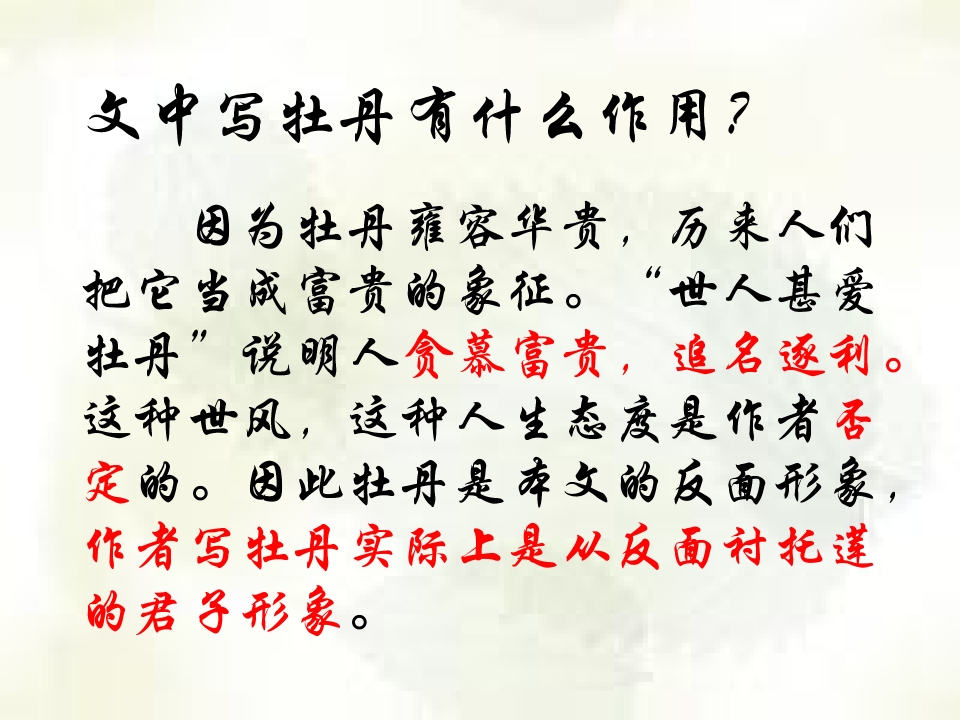 文中写牡丹有什么作用?
因为牡丹雍容华贵，历来人们
把它当成富贵的象征。“世人甚爱
牡丹”说明人贪慕富贵，追名逐利。
这种世风，这种人生态度是作者否
定的。因此牡丹是本文的反面形象，
作者写牡丹实际上是从反面衬托莲
的君子形象。